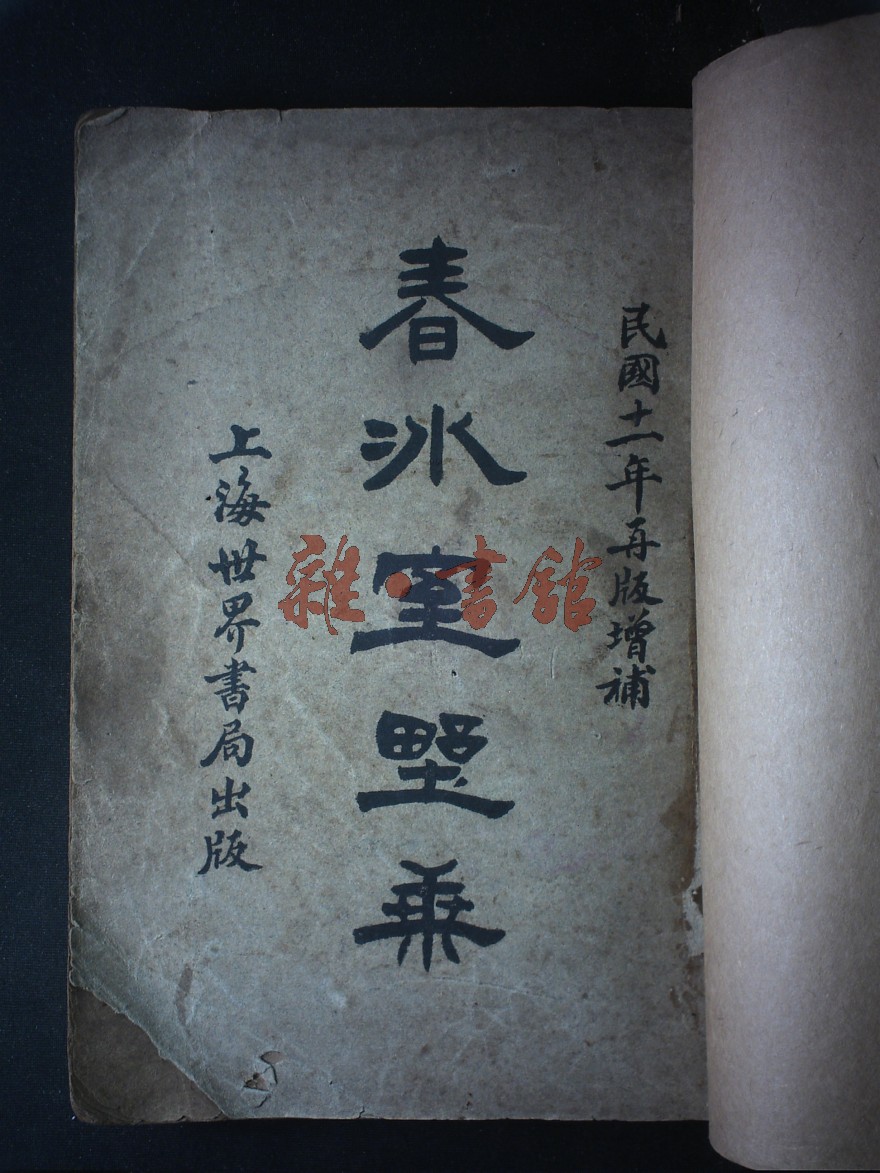 民國十一年再版增補
春冰室埜乘
上海世界書局出版
雜·書館